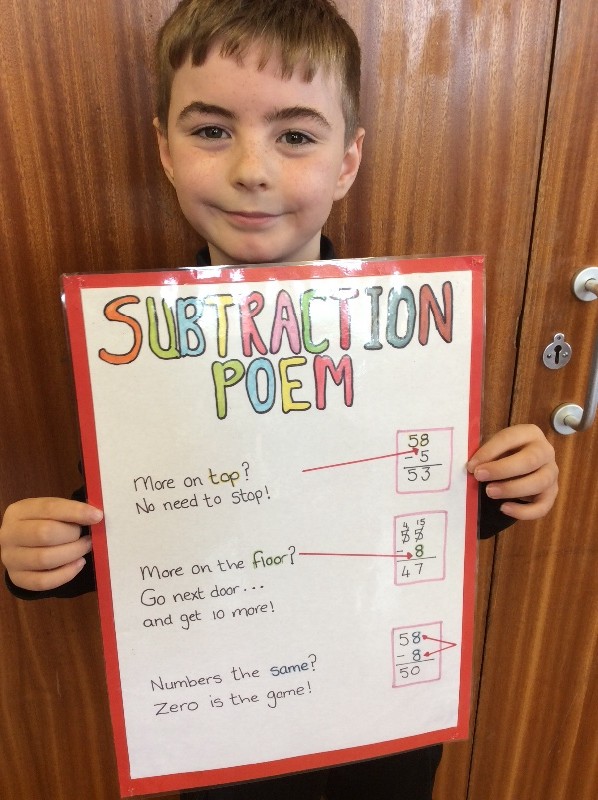 SUBTRACTION
POEM
More on top?
No need to stop!
58
- 5
53
More on the floor?
Go next door...
and get 10 more!
4 15
5 5
- 8
4 7
Numbers the same?
Zero is the game!
58
- 8
50